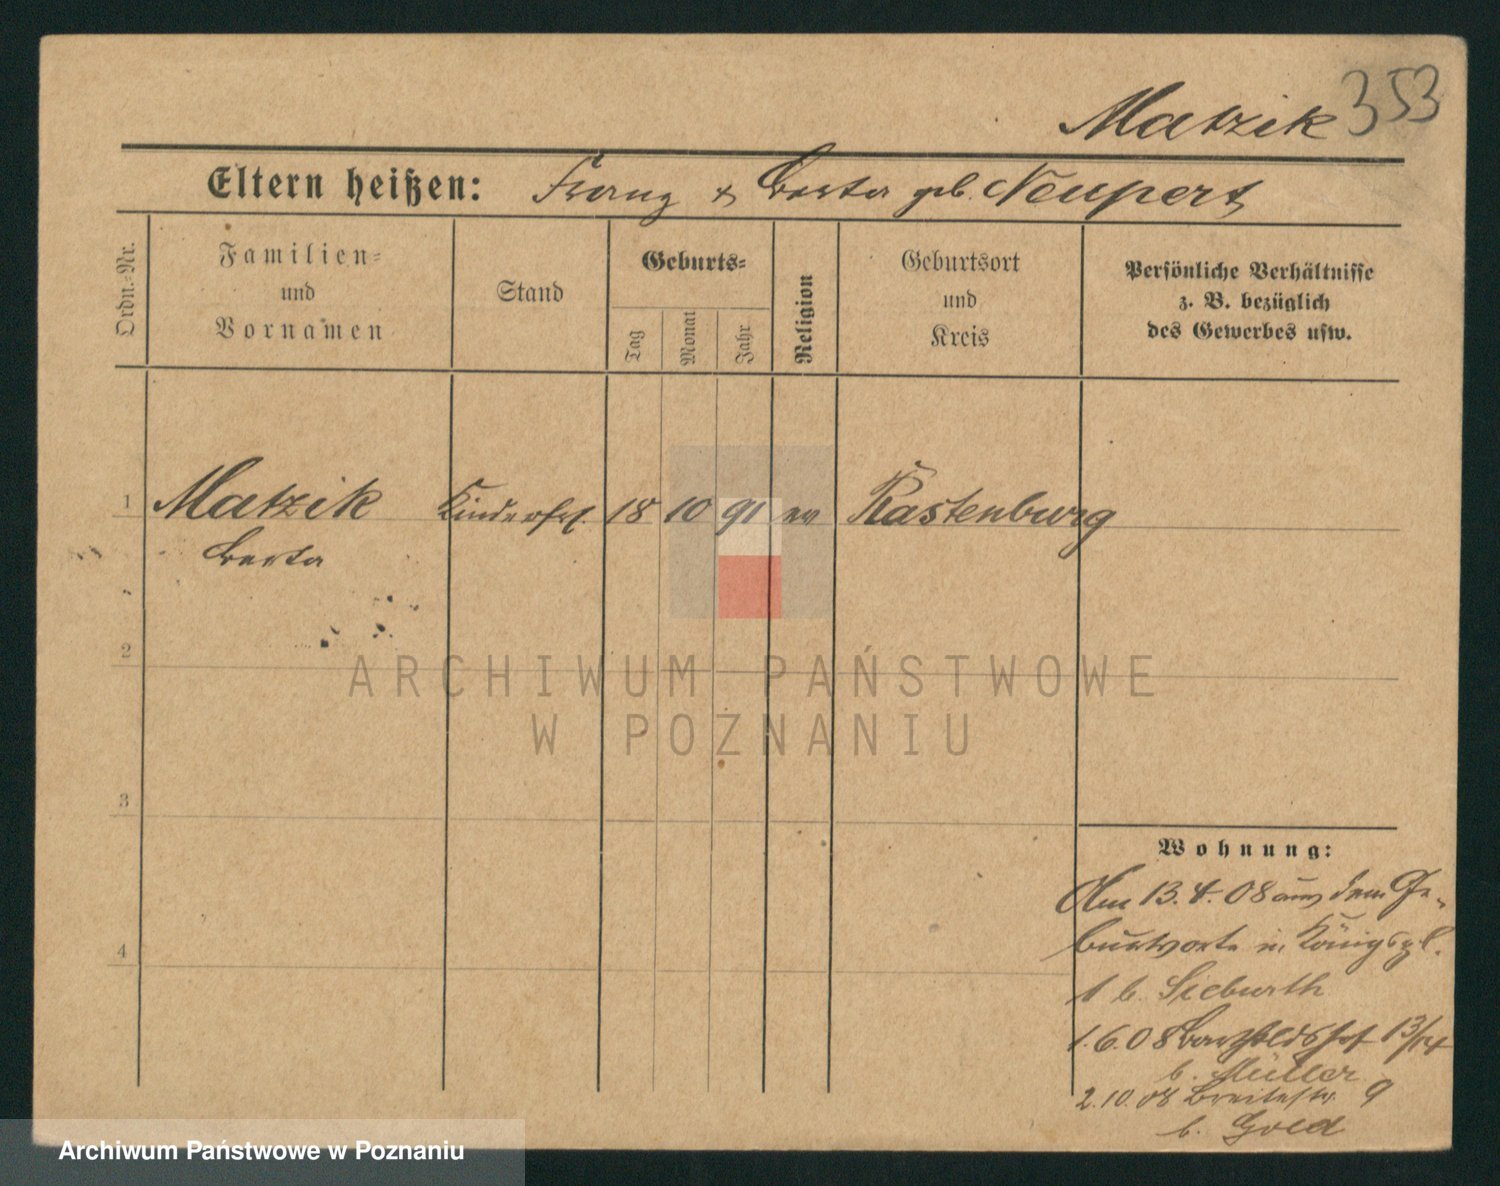 Matzik 353
Eltern heißen: Franz & Berta geb. Neupert
Ordn.-Nr.
Familien-
und
Vornamen
Stand
Geburts-
Tag
Monat
Jahr
Religion
Geburtsort
und
Kreis
Persönliche Verhältnisse
z. B. bezüglich
des Gewerbes usw.
1 Matzik Kinderfrl. 18 10 91 ev Rastenburg
Berta
2
ARCHIWUM PAŃSTWOWE
W POZNANIU
3
4
Wohnung:
Am 13.4.08 aus dem Ge-
burtsorte in Königspl.
1 b. Sieburth
1.6.08 13/14
b. Müller
2.10.08 Breitestr. 9
b. Gold
Archiwum Państwowe w Poznaniu